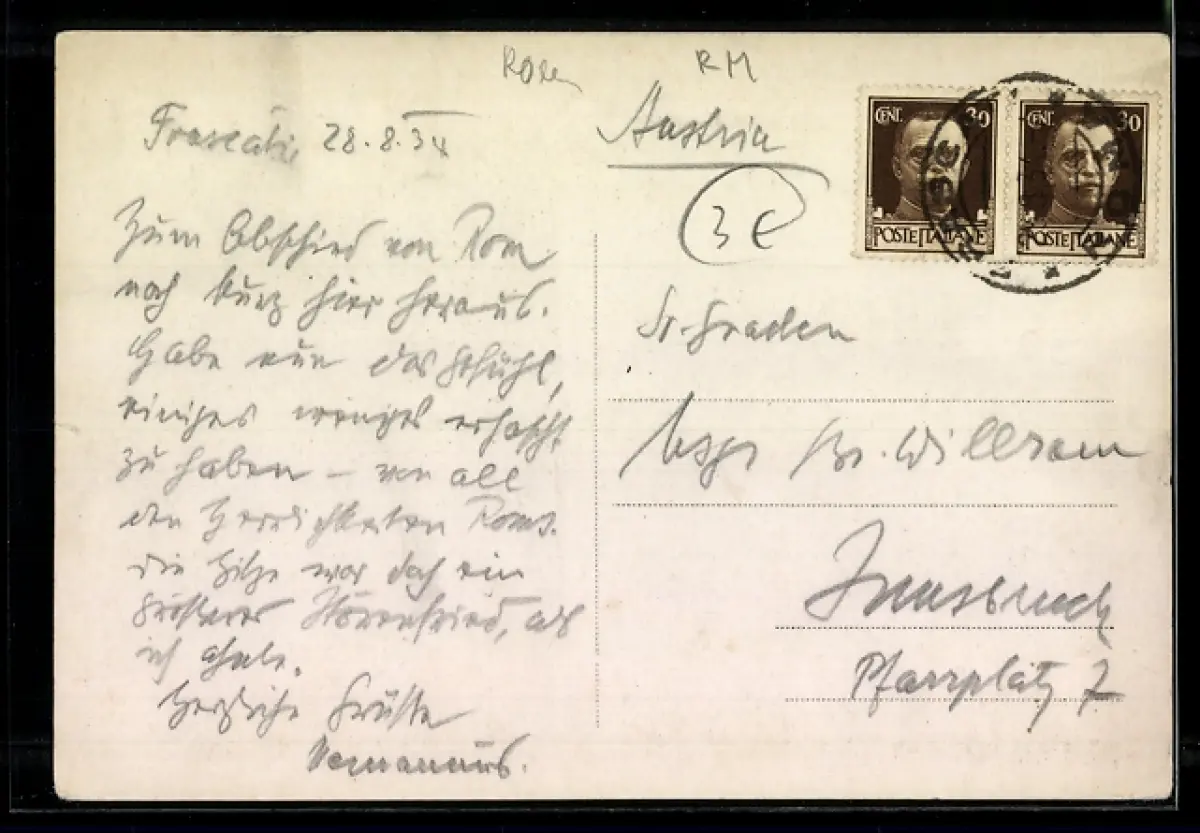 Rosen
RM
Frascati, 28.8.34
Zum Abschied von Rom
noch kurz hier heraus.
Habe nun das Gefühl,
einiges weniges erhascht
zu haben – von all
den Herrlichkeiten Roms.
Die Hitze war doch ein
größerer Störenfried, als
ich ahnte.
Herzliche Grüße
Austria
3 €
CENT. 30
POSTE ITALIANE
CENT. 30
POSTE ITALIANE
Sr. Gnaden
Msgr Br. Willram
Innsbruck
Pfarrplatz 7